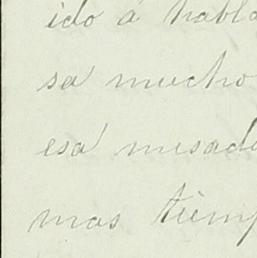 ido á habla
sa mucho
esa mesad
mas tiemp